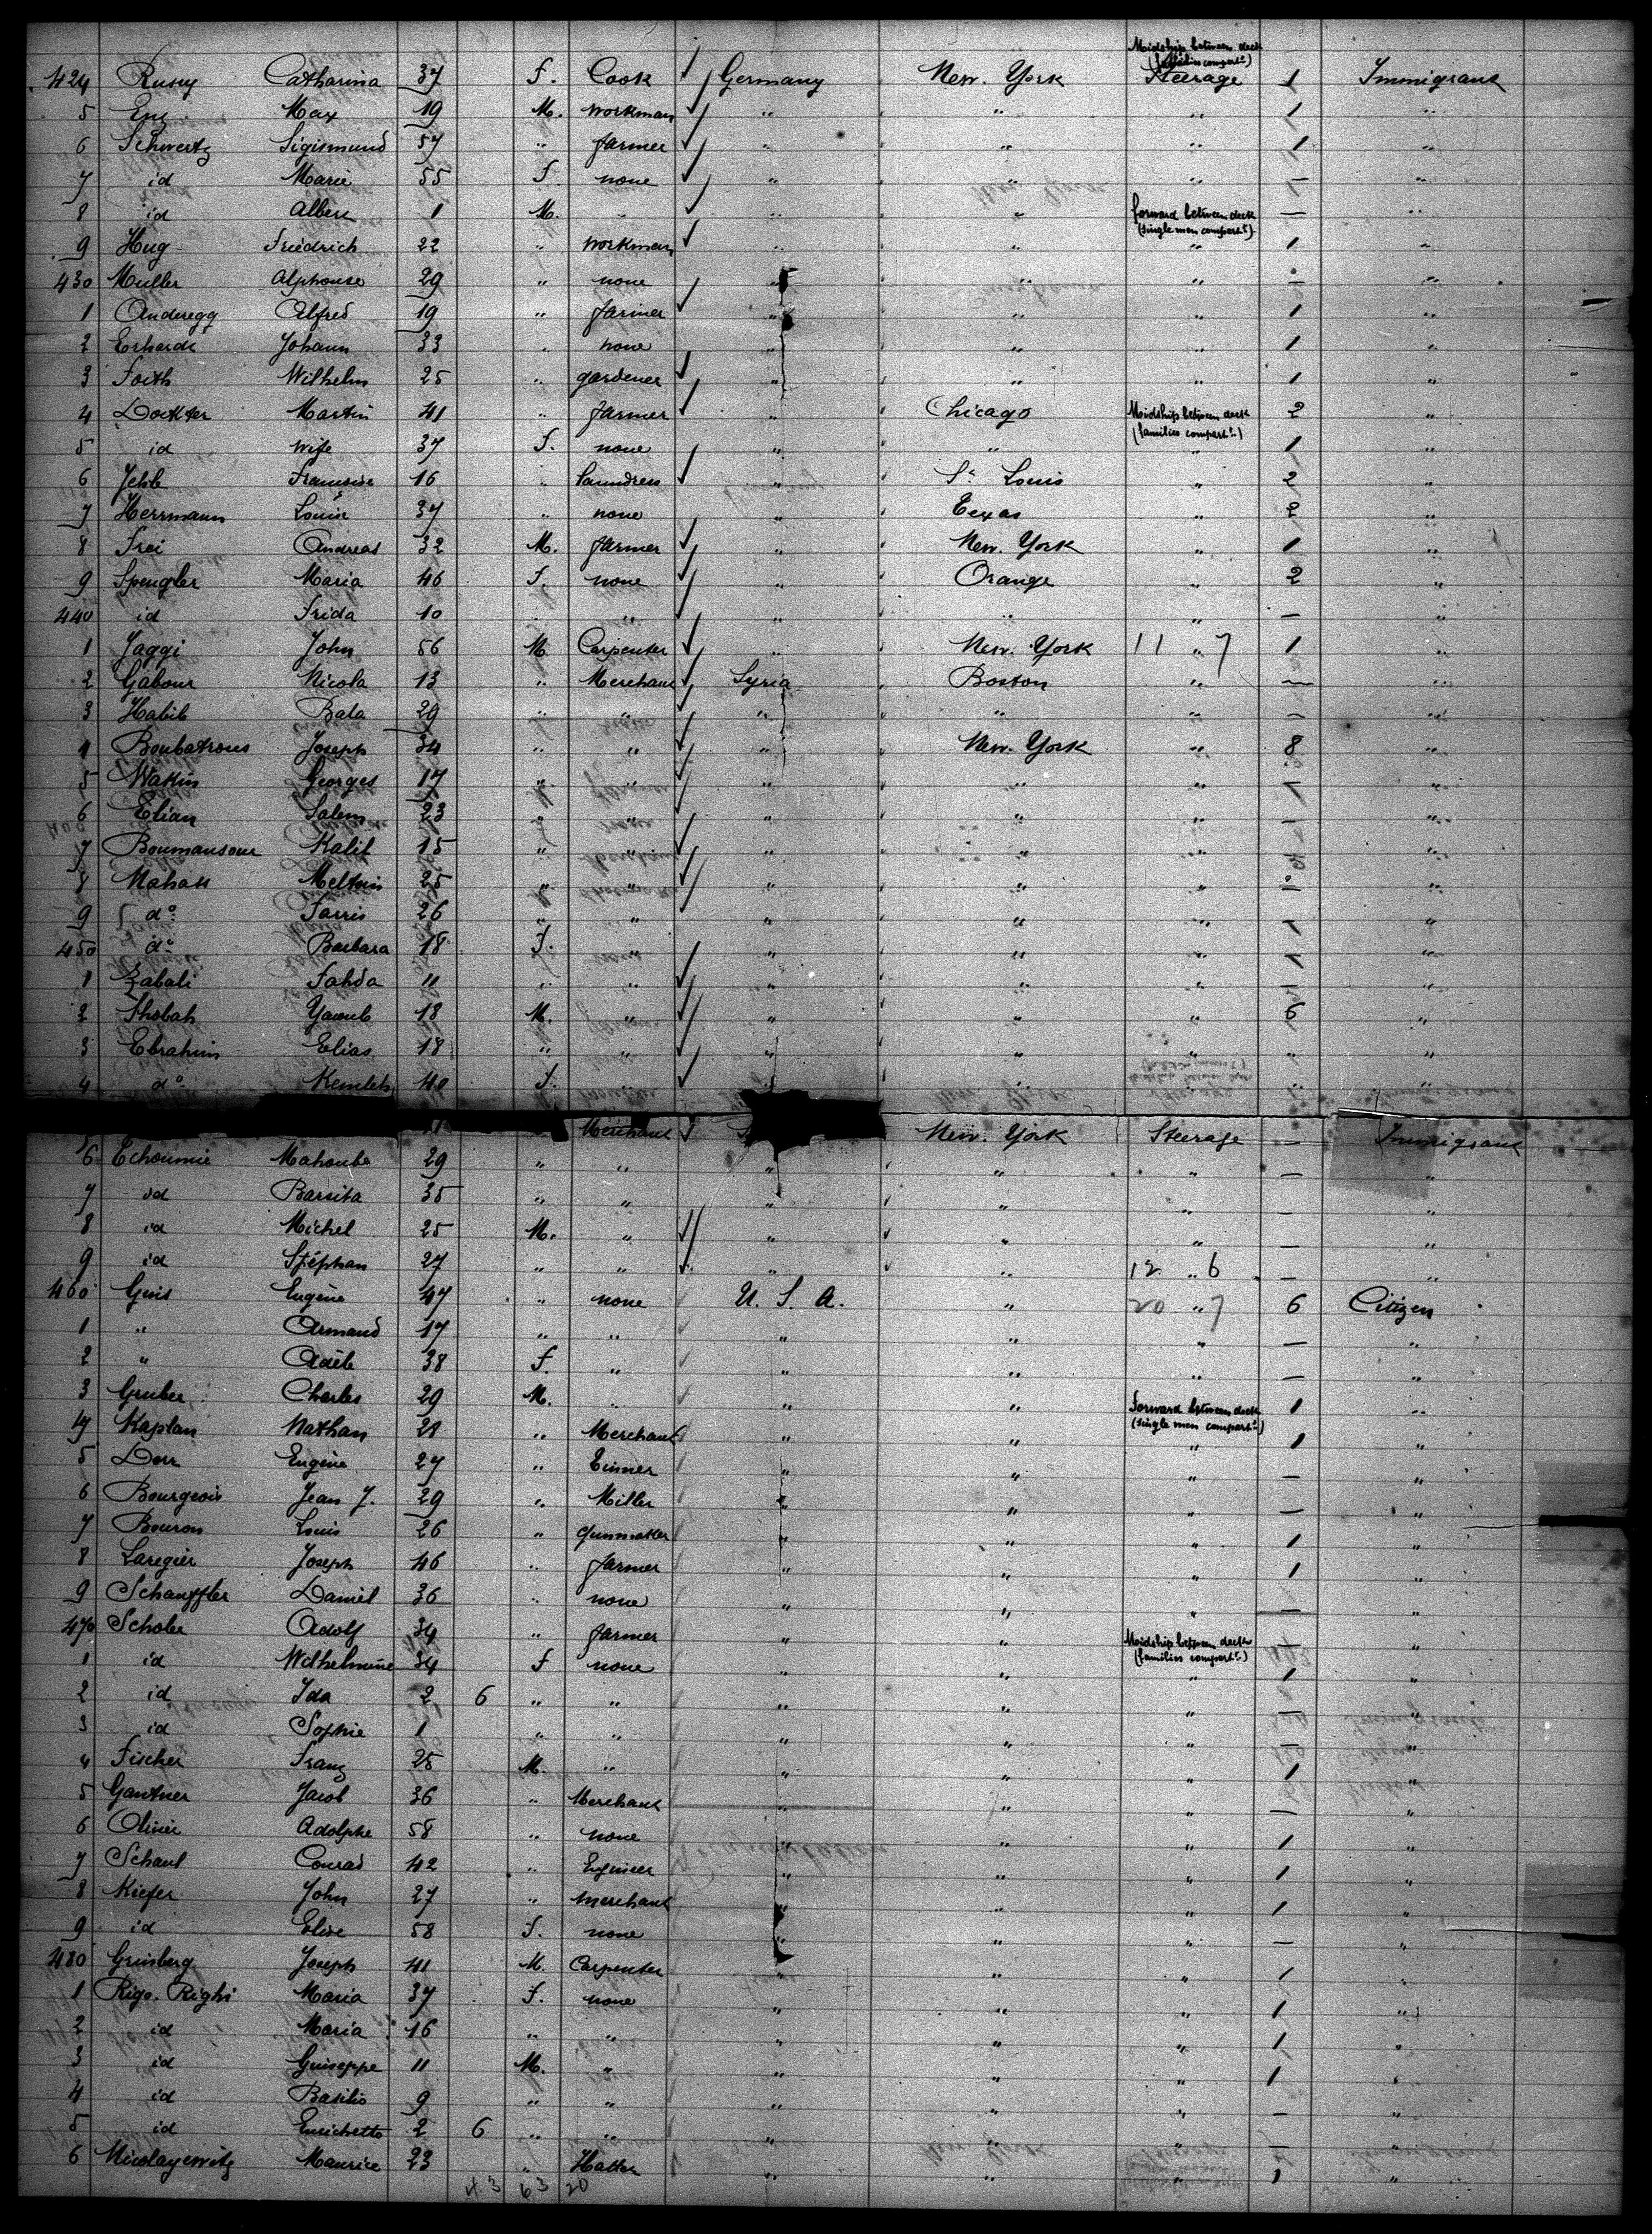 Midship between deck
(families compart.t)
424 Rusry Catharina 37 F. Cook Germany New. York Steerage 1 Immigrant
5 Eng Max 19 M. workman " " " 1 "
6 Schwertz Sigismund 57 " farmer " " " 1 "
7 id Marie 55 F. none " " " — "
8 id Albert 1 M. " " " " — "
forward between deck
(single men compart.t)
9 Hug Friedrich 22 " workman " " " 1 "
430 Muller Alphonse 29 " none " " " — "
1 Anderegg Alfred 19 " farmer " " " 1 "
2 Erhardt Johann 33 " none " " " 1 "
3 Foith Wilhelm 25 " gardener " " " 1 "
4 Dockter Martin 41 " farmer " Chicago Midship between deck 2 "
(families compart.t)
5 id wife 37 F. none " " " 1 "
6 Jehle Francoise 16 " laundress " St. Louis " 2 "
7 Herrmann Louise 37 " none " Texas " 2 "
8 Frei Andreas 32 M. farmer " New. York " 1 "
9 Spengler Maria 46 F. none " Orange " 2 "
440 id Frida 10 " " " " " — "
1 Jaggi John 56 M. Carpenter " New. York 11 " 7 1 "
2 Gabour Nicola 13 " Merchant Syria Boston " — "
3 Habib Bala 29 " " " " " — "
4 Boubatrous Joseph 34 " " " New. York " 8 "
5 Wakim Georges 17 " " " " " 1 "
6 Elian Salem 23 " " " " " — "
7 Boumansour Kalil 15 " " " " " "
8 Nahass 25 " " " " " 1 "
9 do Farris 26 " " " " " 1 "
450 do Barbara 18 F. " " " " 1 "
1 Zabali Fahda 11 " " " " " 1 "
2 Shobah Yacoub 18 M. " " " " 6 "
3 Ebrahim Elias 18 " " " " " "
4 do 40 F. " " " " "
Merchant New. York Steerage — Immigrant
6 Echoumie Mahoube 29 " " " " " — "
7 id Barsita 35 " " " " " — "
8 id Michel 25 M. " " " " — "
9 id Stéphan 27 " " " " 12 " 6 — "
460 Guis Eugène 47 " none U. S. A. " 20 " 7 6 Citizen
1 " Armand 17 " " " " " — "
2 " Adèle 38 F " " " " — "
3 Gruber Charles 29 M. " " " Forward between deck 1 "
(single men compart.t)
4 Kaplan Nathan 28 " Merchant " " " 1 "
5 Dorr Eugène 27 " " " " — "
6 Bourgeois Jean J. 29 " Miller " " " — "
7 Bouron Louis 26 " gunmaker " " " 1 "
8 Laregier Joseph 46 " farmer " " " 1 "
9 Schauffler Daniel 36 " none " " " — "
470 Schober Adolf 34 " farmer " " Midship between deck — "
(families compart.t)
1 id Wilhelmine 34 F none " " " 1 "
2 id Ida 2 6 " " " " " — "
3 id Sophie 1 " " " " " — "
4 Fischer Franz 25 M. " " " " 1 "
5 Gantner Jacob 36 " Merchant " " " — "
6 Olivier Adolphe 58 " none " " " 1 "
7 Schaul Conrad 42 " Engineer " " " 1 "
8 Kiefer John 27 " merchant " " " 1 "
9 id Elise 58 F. none " " " — "
480 Grinberg Joseph 41 M. Carpenter " " " 1 "
1 Rigo. Righi Maria 37 F. none " " " 1 "
2 id Maria 16 " " " " " 1 "
3 id Guiseppe 11 M. " " " " 1 "
4 id Basilio 9 " " " " " — "
5 id Enrichetto 2 6 " " " " " — "
6 Nicolayewitz Maurice 23 " Hatter " " " 1 "
43 63 20